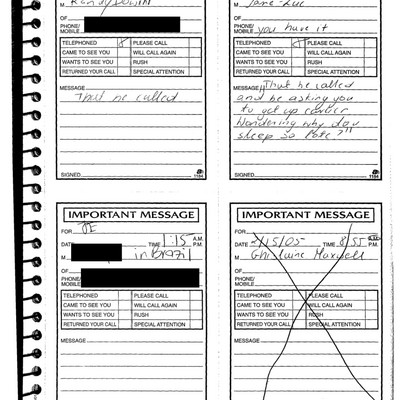 M Randy
OF
PHONE/
MOBILE
TELEPHONED PLEASE CALL
CAME TO SEE YOU WILL CALL AGAIN
WANTS TO SEE YOU RUSH
RETURNED YOUR CALL SPECIAL ATTENTION
MESSAGE
That he called
SIGNED 1184
M Jane-Luc
OF
PHONE/
MOBILE you have it
TELEPHONED PLEASE CALL
CAME TO SEE YOU WILL CALL AGAIN
WANTS TO SEE YOU RUSH
RETURNED YOUR CALL SPECIAL ATTENTION
MESSAGE "That he called
and he asking you
to get up earlier
Wondering why do you
sleep so late?"
SIGNED 1184
IMPORTANT MESSAGE
FOR JE
DATE TIME 1:15 A.M.
P.M.
M in Brazil
OF
PHONE/
MOBILE
TELEPHONED PLEASE CALL
CAME TO SEE YOU WILL CALL AGAIN
WANTS TO SEE YOU RUSH
RETURNED YOUR CALL SPECIAL ATTENTION
MESSAGE
IMPORTANT MESSAGE
FOR
DATE 2/15/05 TIME 8:55 A.M.
P.M.
M Ghislaine Maxwell
OF
PHONE/
MOBILE
TELEPHONED PLEASE CALL
CAME TO SEE YOU WILL CALL AGAIN
WANTS TO SEE YOU RUSH
RETURNED YOUR CALL SPECIAL ATTENTION
MESSAGE